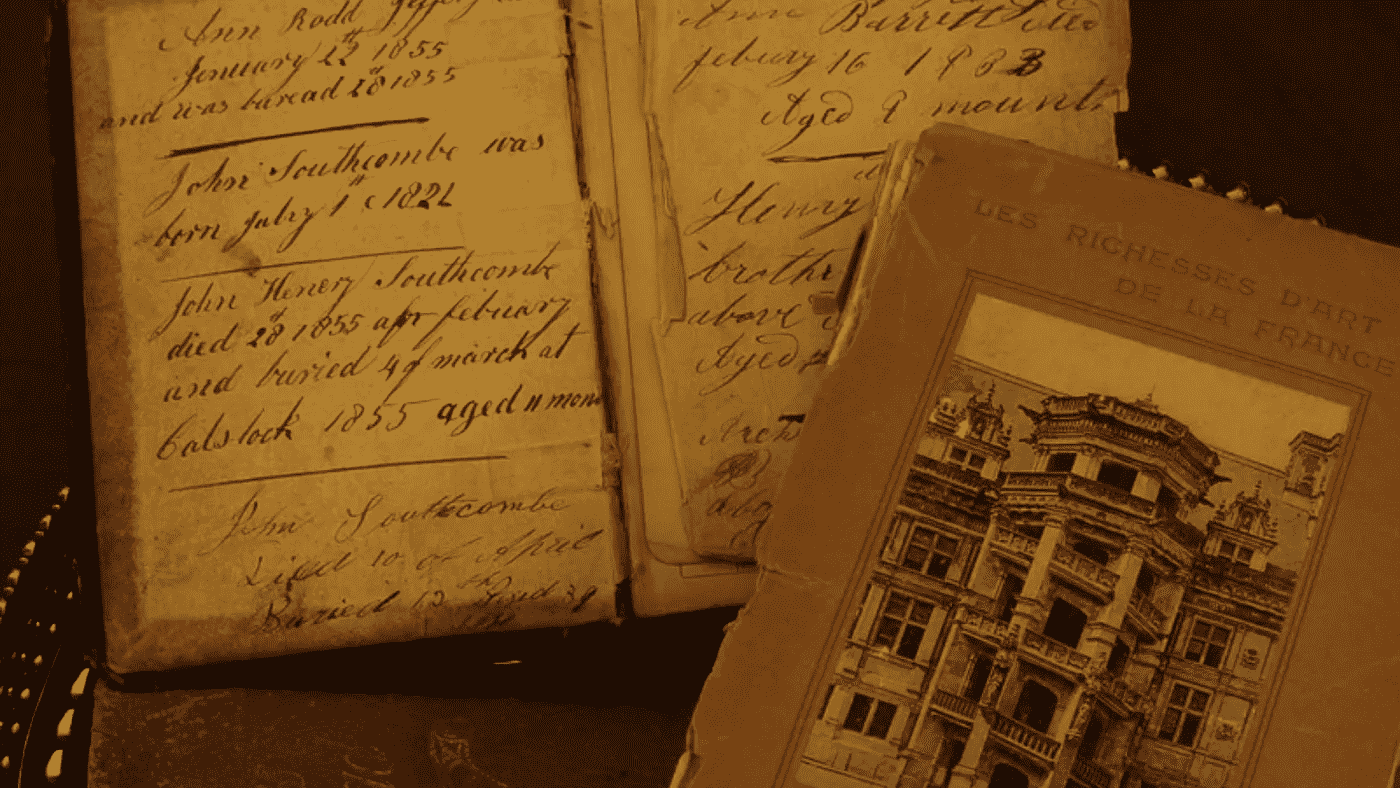 Ann Rodd
January 22th 1855
and was buread 28th 1855
John Southcombe was
born July 1st 1821
John Henery Southcombe
died 28th 1855 apr febuary
and buried 4 of march at
Calstock 1855 aged 11 mon
John Southcombe
Died 10 of April
Buried 13th Aged 39
Ann Barrett Died
febury 16 1833
Aged 9 mounts
Henry
brothe
above
Aged
LES RICHESSES D'ART
DE LA FRANCE